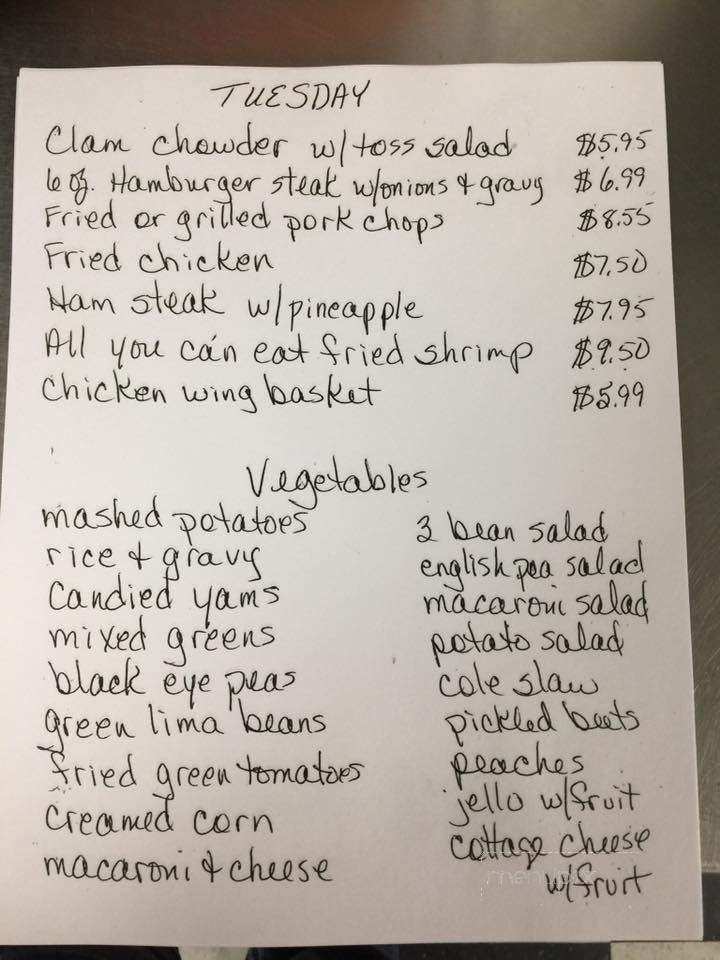 TUESDAY
Clam chowder w/toss salad $5.95
6 oz. Hamburger steak w/onions & gravy $6.99
Fried or grilled pork chops $8.55
Fried chicken $7.50
Ham steak w/pineapple $7.95
All you can eat fried shrimp $9.50
Chicken wing basket $5.99
Vegetables
mashed potatoes
rice & gravy
Candied yams
mixed greens
black eye peas
green lima beans
fried green tomatoes
Creamed corn
macaroni & cheese
3 bean salad
english pea salad
macaroni salad
potato salad
cole slaw
pickled beets
peaches
jello w/fruit
cottage cheese
w/fruit